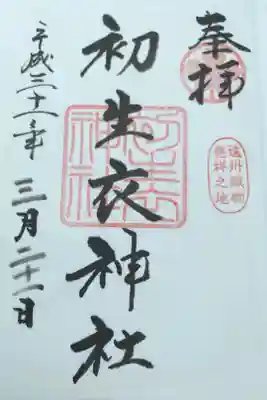 奉拝
遠州織物
発祥之地
初生衣神社
平成三十一年
三月二十一日